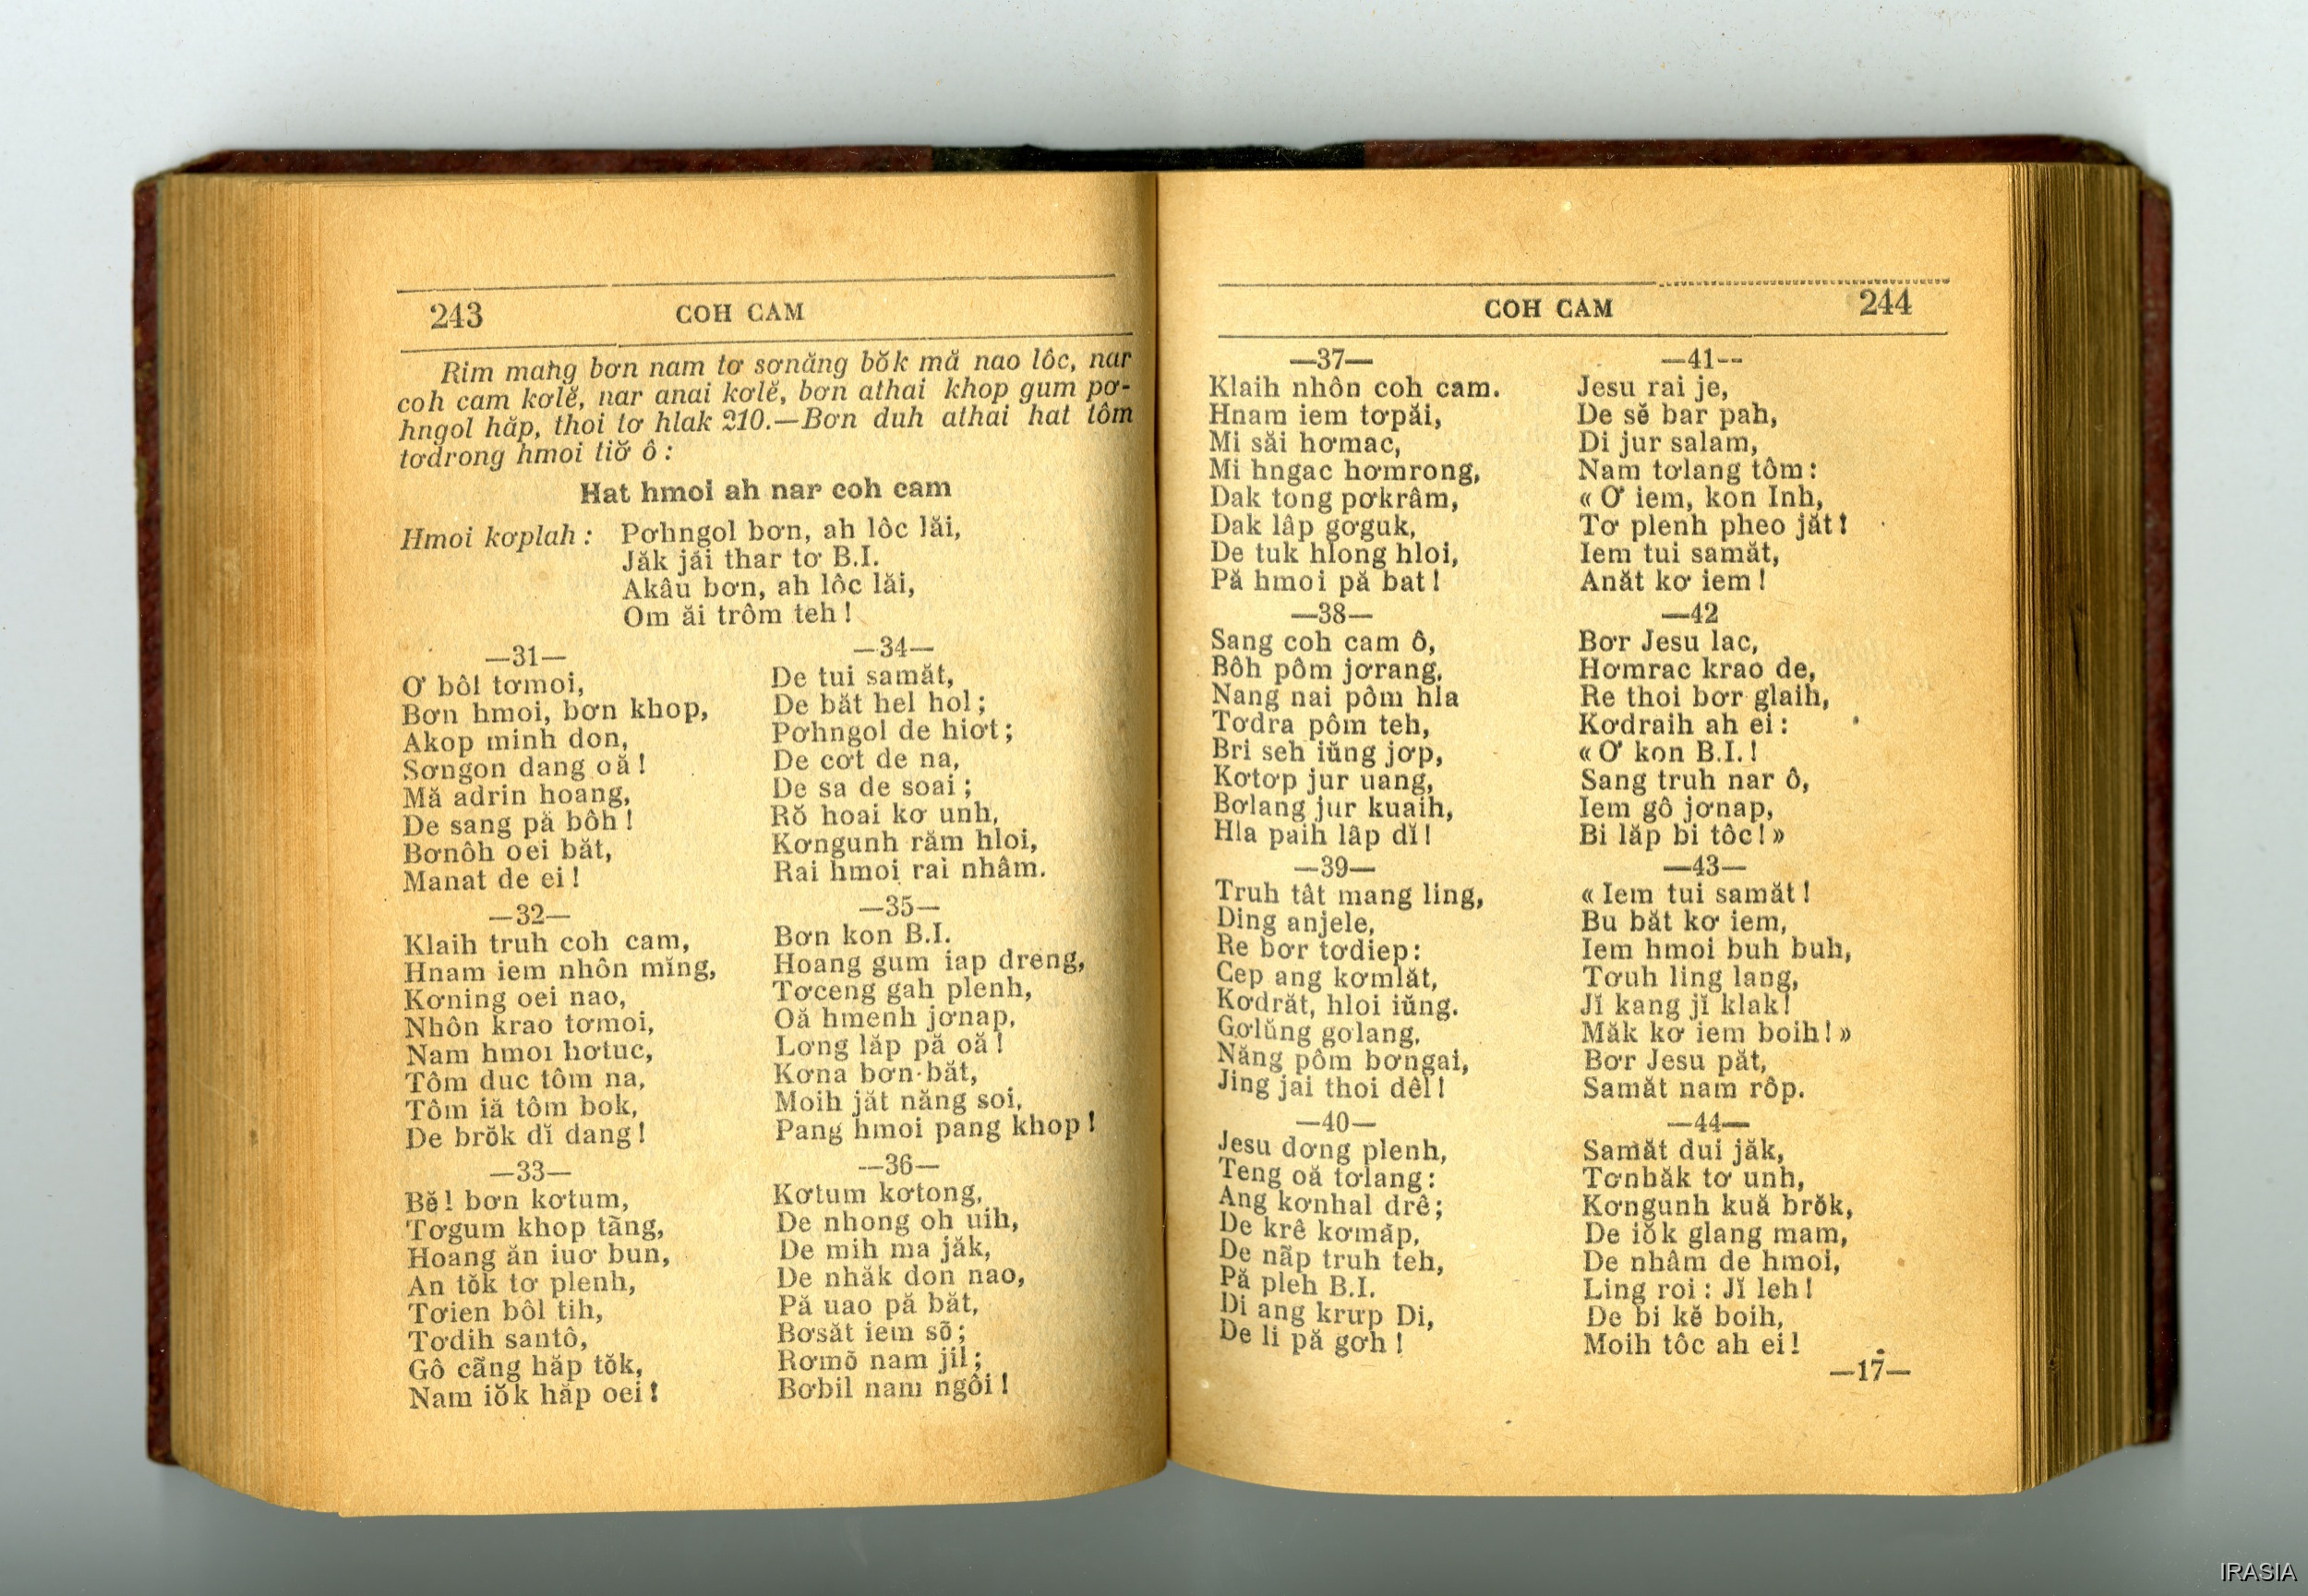 243 COH CAM
Rim mang bơn nam tơ sơnăng bŏk mă nao lôc, nar
coh cam kơlĕ, nar anai kơlĕ, bơn athai khop gum pơ-
hngol hăp, thoi tơ hlak 210.—Bơn duh athai hat tôm
tơdrong hmoi tiơ̆ ô :
Hat hmoi ah nar coh cam
Hmoi kơplah : Pơhngol bơn, ah lôc lăi,
Jăk jăi thar tơ B.I.
Akâu bơn, ah lôc lăi,
Om ăi trôm teh !
—31—
Ơ bôl tơmoi,
Bơn hmoi, bơn khop,
Akop minh don,
Sơngon dang oă !
Mă adrin hoang,
De sang pă bôh !
Bơnôh oei băt,
Manat de ei !
—32—
Klaih truh coh cam,
Hnam iem nhôn mĭng,
Kơning oei nao,
Nhôn krao tơmoi,
Nam hmoi hơtuc,
Tôm duc tôm na,
Tôm iă tôm bok,
De brŏk dĭ dang !
—33—
Bĕ ! bơn kơtum,
Tơgum khop tăng,
Hoang ăn iuơ bun,
An tŏk tơ plenh,
Tơien bôl tih,
Tơdih santô,
Gô căng hăp tŏk,
Nam iŏk hăp oei !
—34—
De tui samăt,
De băt hel hol ;
Pơhngol de hiơt ;
De cơt de na,
De sa de soai ;
Rŏ hoai kơ unh,
Kơngunh răm hloi,
Rai hmoi rai nhâm.
—35—
Bơn kon B.I.
Hoang gum iap dreng,
Tơceng gah plenh,
Oă hmenh jơnap,
Lơng lăp pă oă !
Kơna bơn băt,
Moih jăt năng soi,
Pang hmoi pang khop !
—36—
Kơtum kơtong,
De nhong oh uih,
De mih ma jăk,
De nhăk don nao,
Pă uao pă băt,
Bơsăt iem sŏ ;
Rơmŏ nam jil ;
Bơbil nam ngôi !
COH CAM 244
—37—
Klaih nhôn coh cam.
Hnam iem tơpăi,
Mi săi hơmac,
Mi hngac hơmrong,
Dak tong pơkrâm,
Dak lâp gơguk,
De tuk hlong hloi,
Pă hmoi pă bat !
—38—
Sang coh cam ô,
Bôh pôm jơrang,
Nang nai pôm hla
Tơdra pôm teh,
Bri seh iŭng jơp,
Kơtơp jur uang,
Bơlang jur kuaih,
Hla paih lâp dĭ !
—39—
Truh tât mang ling,
Ding anjele,
Re bơr tơdiep :
Cep ang kơmlăt,
Kơdrăt, hloi iŭng.
Gơlŭng gơlang,
Năng pôm bơngai,
Jing jai thoi dêl !
—40—
Jesu dơng plenh,
Teng oă tơlang :
Ang kơnhal drê ;
De krê kơmăp,
De năp truh teh,
Pă pleh B.I.
Di ang krưp Di,
De li pă gơh !
—41--
Jesu rai je,
De sĕ bar pah,
Di jur salam,
Nam tơlang tôm :
« Ơ iem, kon Inh,
Tơ plenh pheo jăt !
Iem tui samăt,
Anăt kơ iem !
—42
Bơr Jesu lac,
Hơmrac krao de,
Re thoi bơr glaih,
Kơdraih ah ei :
« Ơ kon B.I. !
Sang truh nar ô,
Iem gô jơnap,
Bi lăp bi tôc ! »
—43—
« Iem tui samăt !
Bu băt kơ iem,
Iem hmoi buh buh,
Tơuh ling lang,
Jĭ kang jĭ klak !
Măk kơ iem boih ! »
Bơr Jesu păt,
Samăt nam rôp.
—44—
Samăt dui jăk,
Tơnhăk tơ unh,
Kơngunh kuă brŏk,
De iŏk glang mam,
De nhâm de hmoi,
Ling roi : Jĭ leh !
De bi kĕ boih,
Moih tôc ah ei !
—17—
IRASIA